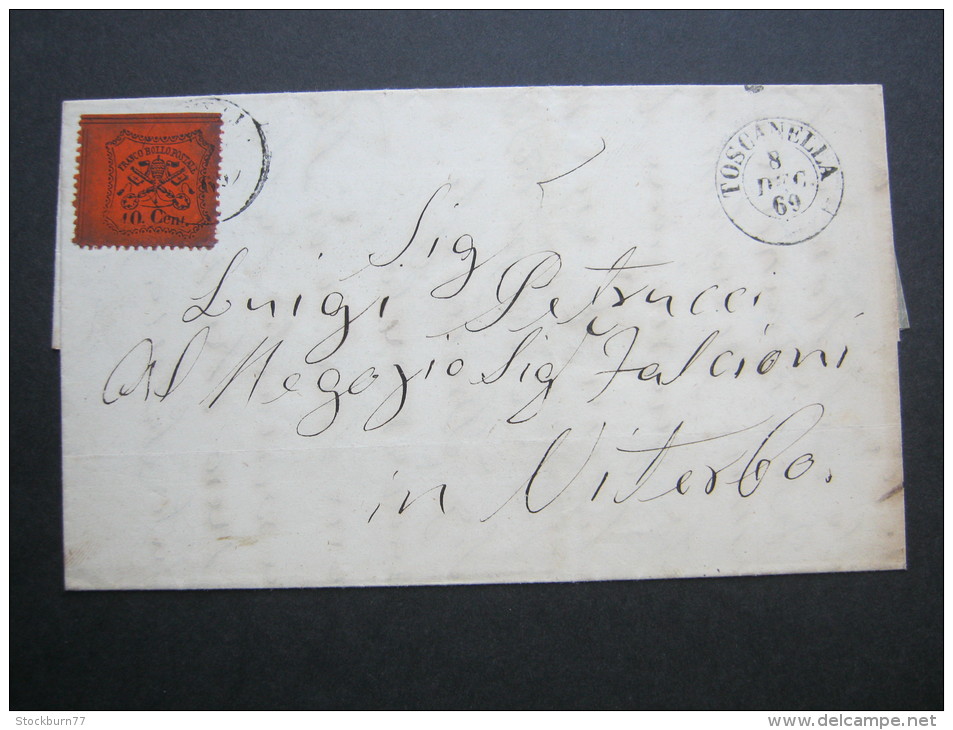 FRANCO BOLLO POSTALE
10. Cent.
TOSCANELLA
8
DEC.
69
Sig
Luigi Petrucci
Al Negozio Sig Falcioni
in Viterbo.
Stockburn77
www.delcampe.net